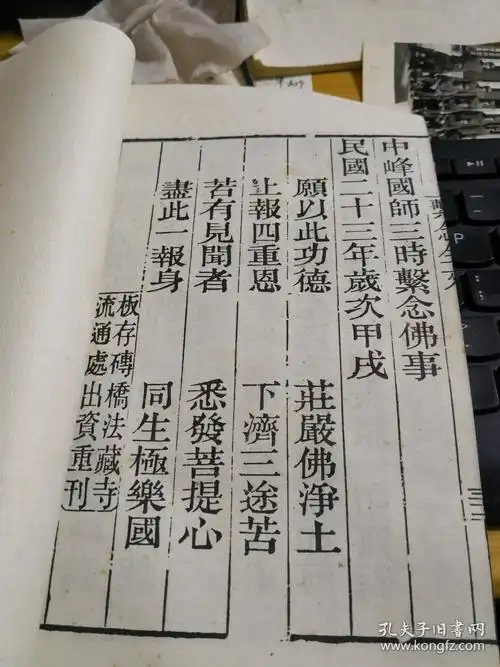 中峰國師三時繫念佛事
民國二十三年歲次甲戌
願以此功德 莊嚴佛淨土
上報四重恩 下濟三途苦
若有見聞者 悉發菩提心
盡此一報身 同生極樂國
板存磚橋法藏寺
流通處出資重刊
孔夫子旧书网
www.kongfz.com